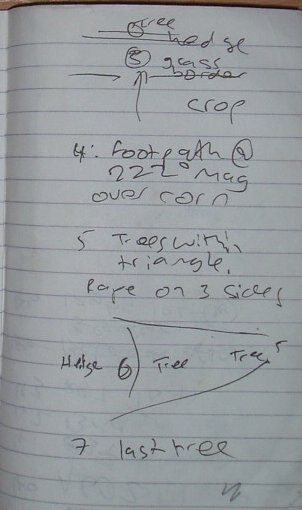 tree
hedge
③ grass
border
crop
4: footpath @
222° Mag
over corn
5 Trees within
triangle.
Rape on 3 sides
Hedge 6 Tree Trees
7 last tree